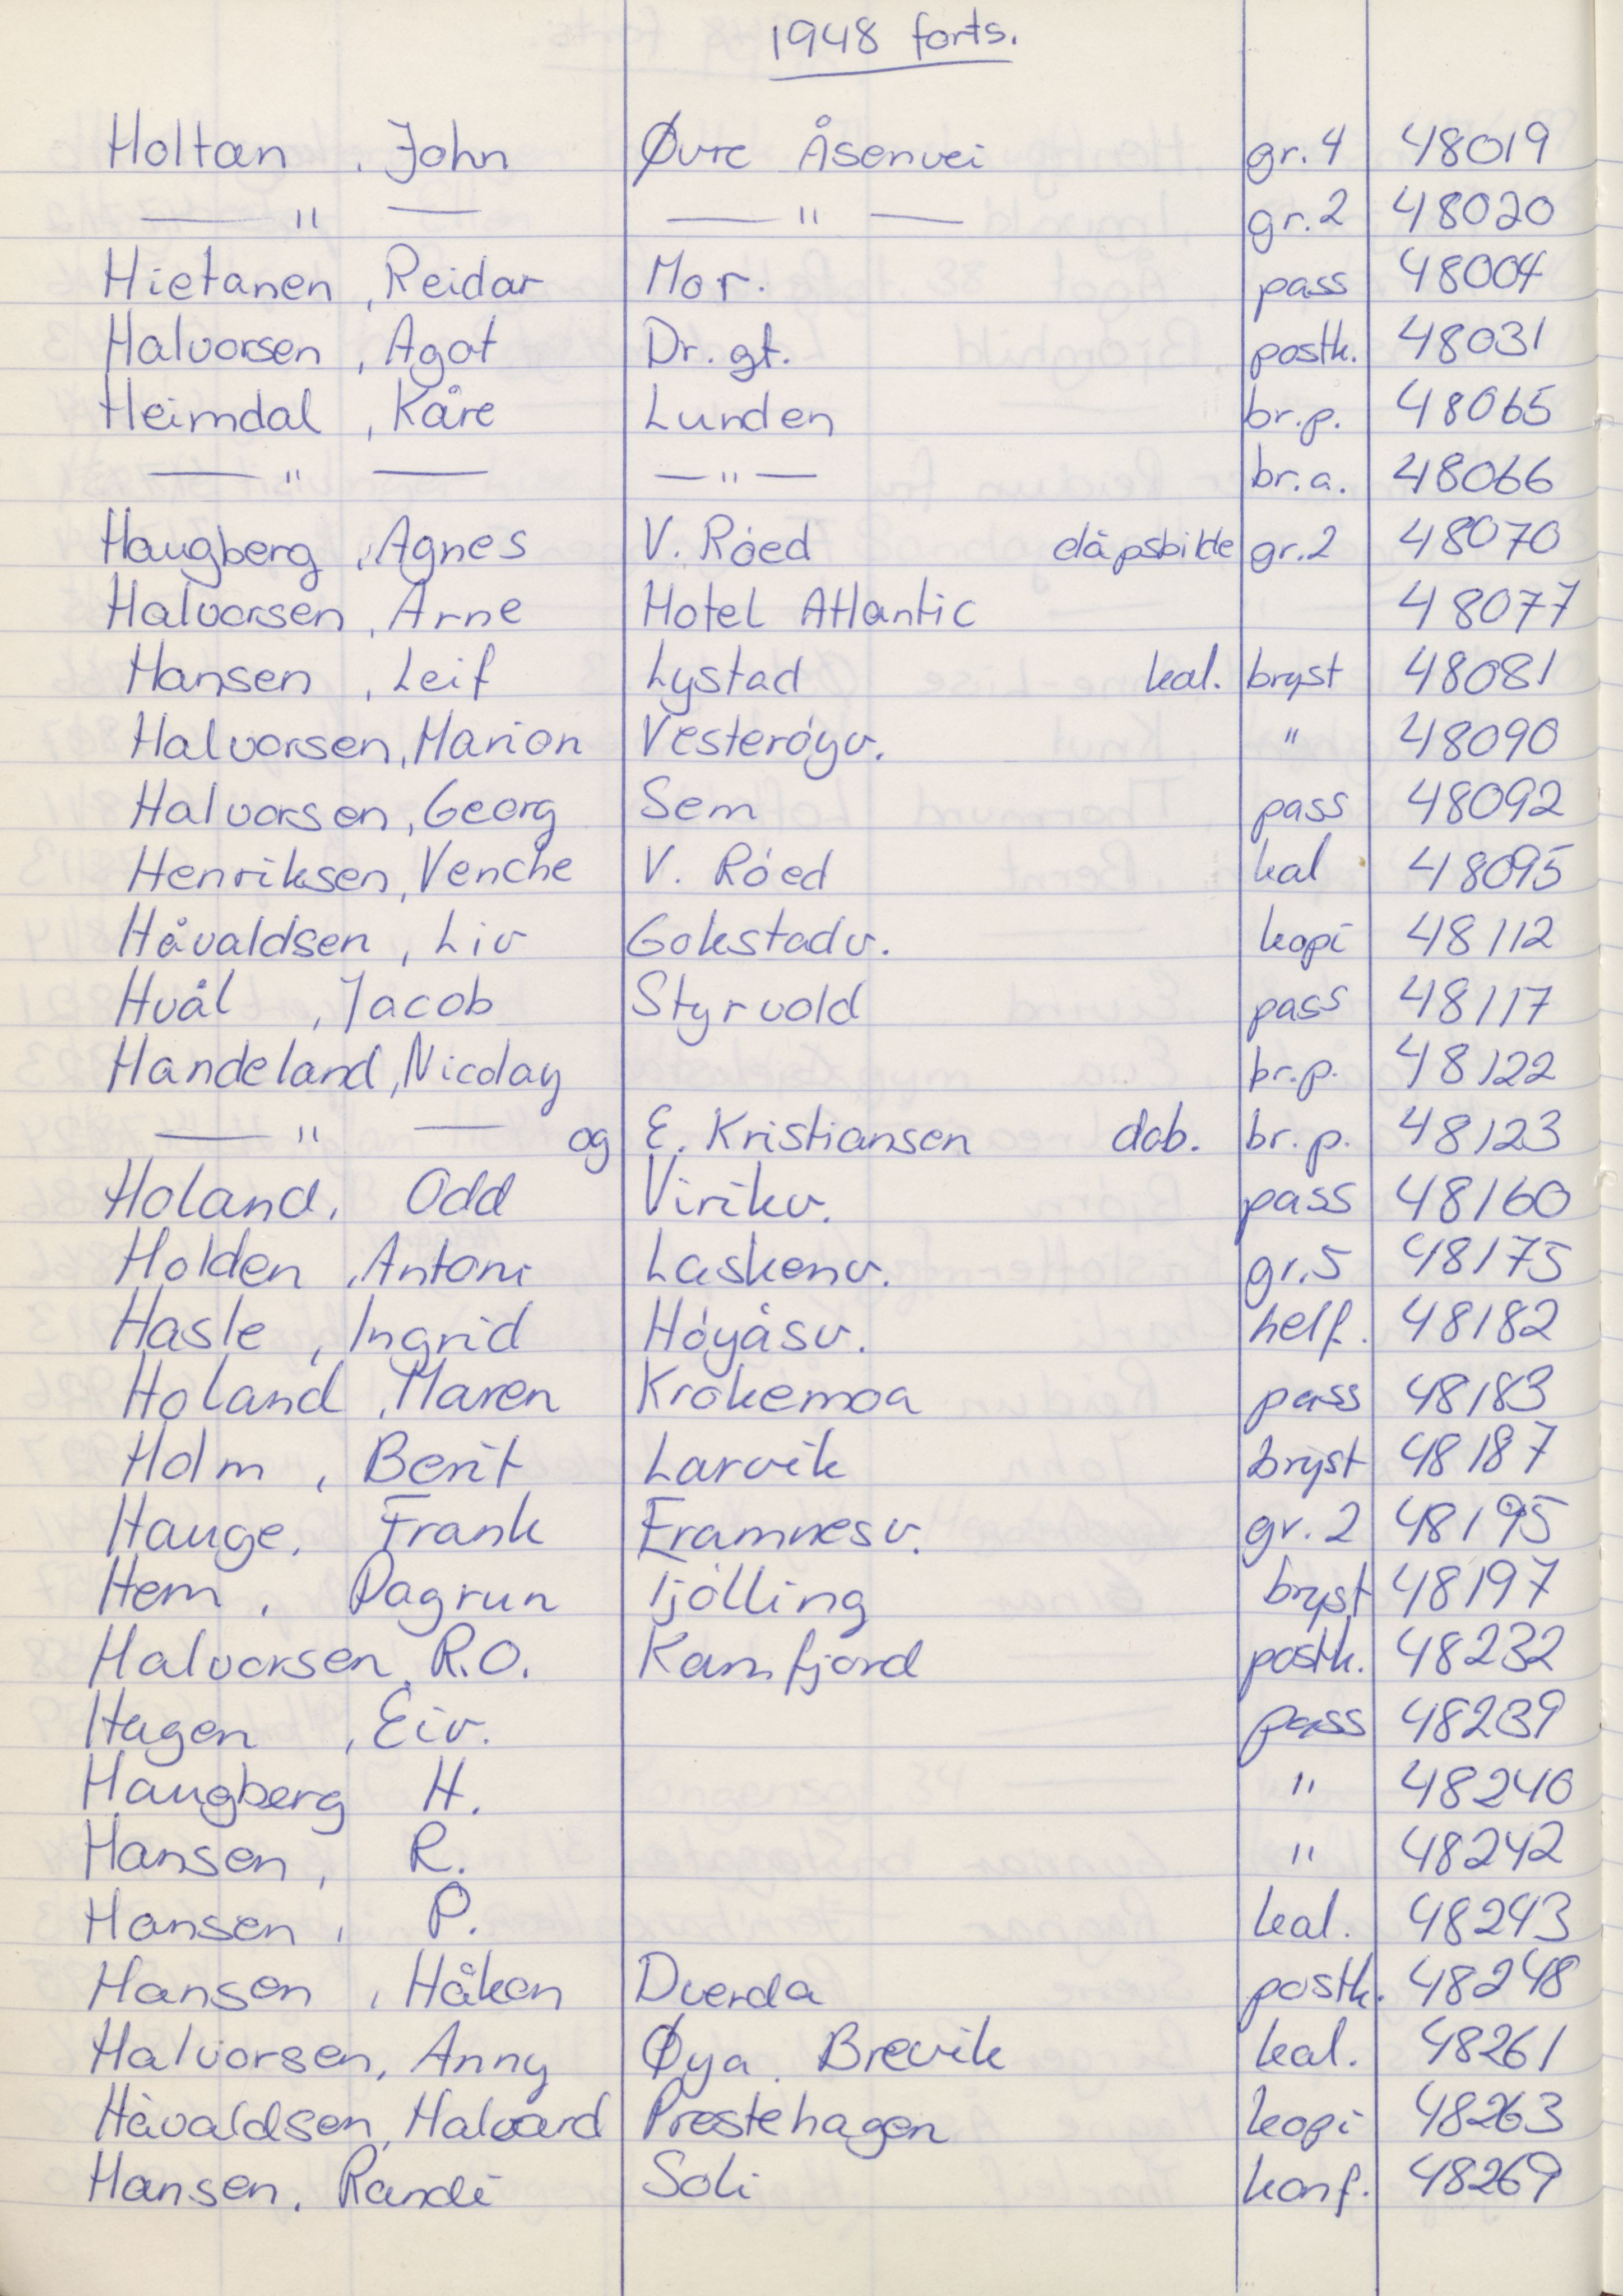 1948 forts.
Holtan , John Øvre Åsenvei gr. 4 48019
— " — — " — gr. 2 48020
Hietanen , Reidar Mor. pass 48004
Halvorsen , Agot Dr. gt. postk. 48031
Heimdal , Kåre Lunden br.p. 48065
— " — — " — br.a. 48066
Haugberg , Agnes V. Róed dåpsbilde gr. 2 48070
Halvorsen , Arne Hotel Atlantic 48077
Hansen , Leif Lystad kal. bryst 48081
Halvorsen, Marion Vesteróyv. " 48090
Halvorsen, Georg Sem pass 48092
Henriksen, Venche V. Róed kal 48095
Håvaldsen , Liv Gokstadv. kopi 48112
Hvål , Jacob Styrvold pass 48117
Handeland, Nicolay br.p. 48122
— " — og E. Kristiansen dob. br.p. 48123
Holand, Odd Virikv. pass 48160
Holden , Antoni Laskenv. gr. 5 48175
Hasle , Ingrid Hóyåsv. helf. 48182
Holand , Maren Krokemoa pass 48183
Holm , Berit Larvik bryst 48187
Hauge, Frank Framnesv. gr. 2 48195
Hem , Dagrun Tjólling bryst 48197
Halvorsen, R.O. Kamfjord postk. 48232
Hagen , Eiv. pass 48239
Haugberg H. " 48240
Hansen , R. " 48242
Hansen , P. kal. 48243
Hansen , Håkon Dverda postk. 48248
Halvorsen, Anny Øya. Brevik kal. 48261
Håvaldsen, Halvard Prestehagen kopi 48263
Hansen, Randi Soli konf. 48269